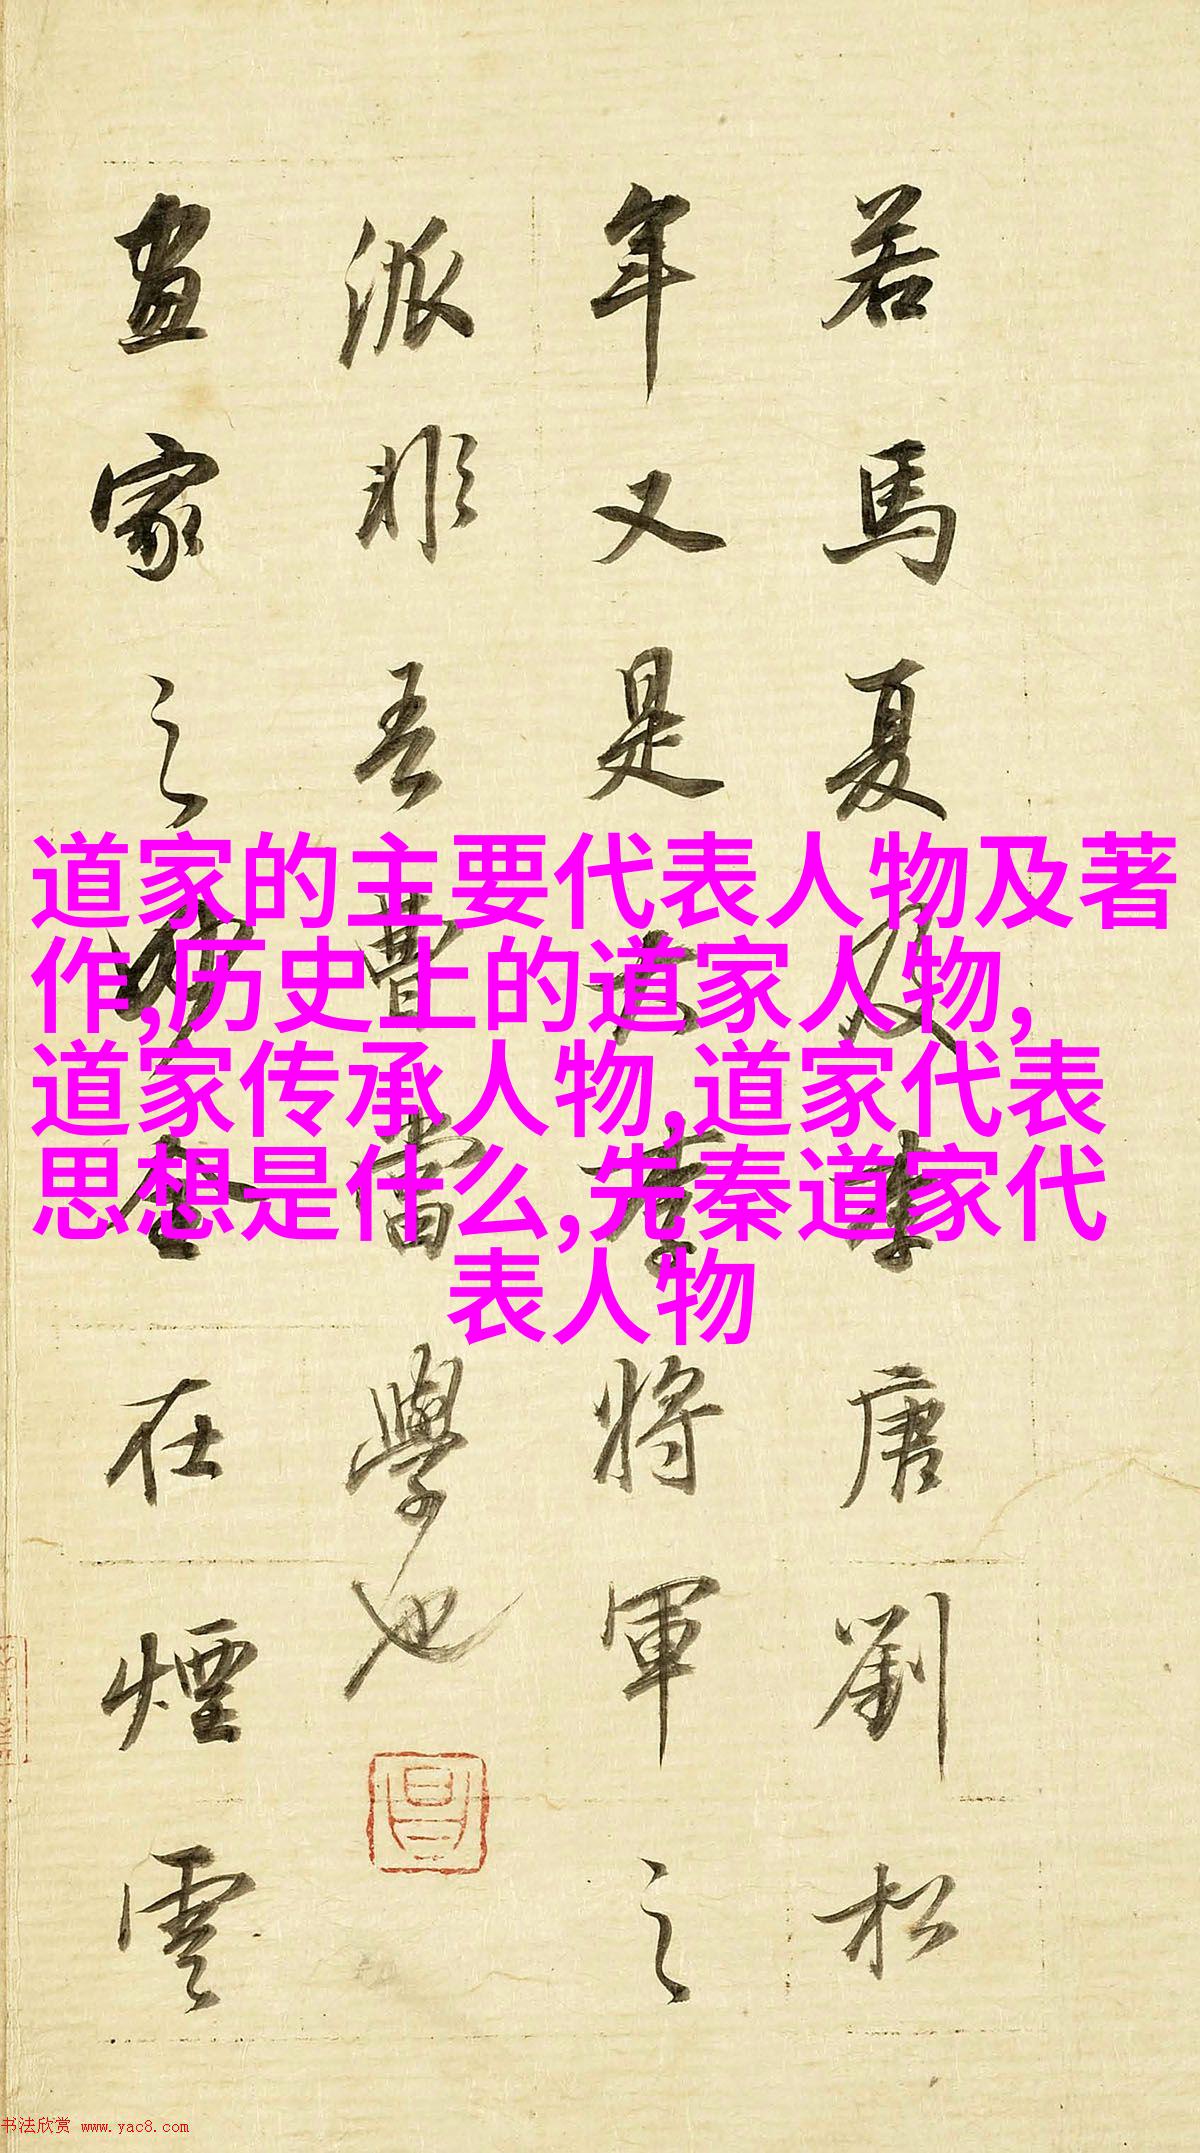 若馬夏及李唐劉松
年又是大李將軍之
派非吾曹當學也
畫家之妙全在煙雲
道家的主要代表人物及著
作,历史上的道家人物,
道家传承人物,道家代表
思想是什么,先秦道家代
表人物
书法欣赏 www.yac8.com